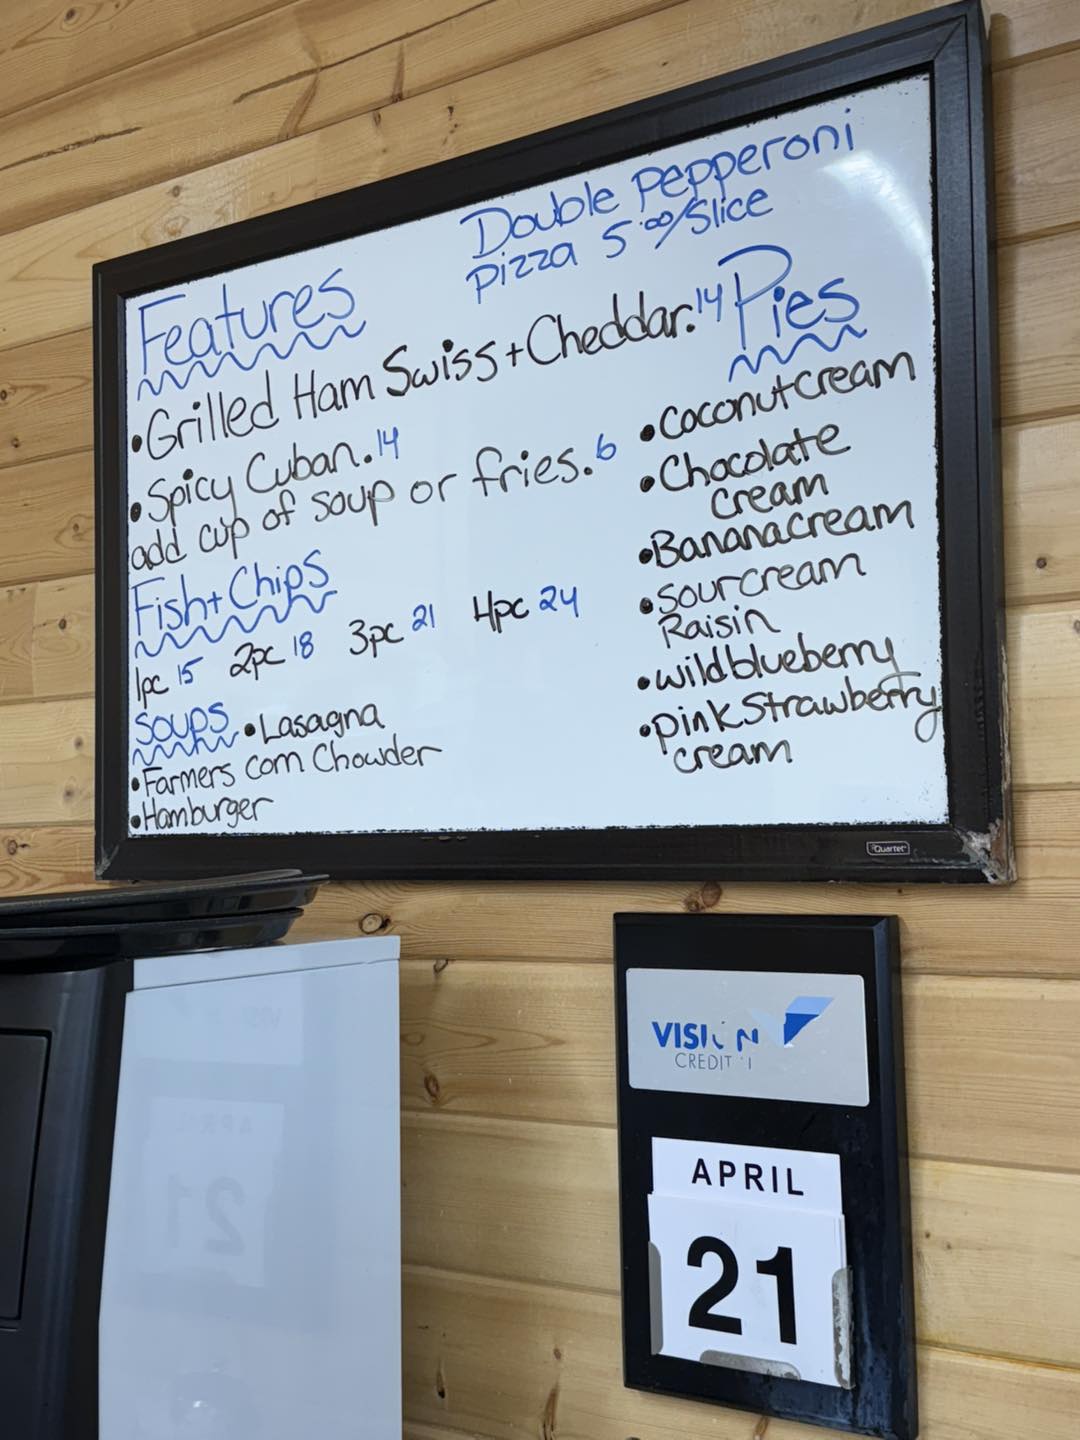 Double Pepperoni
Pizza 5.00/Slice
Features
•Grilled Ham Swiss+Cheddar.14
•Spicy Cuban.14
add cup of soup or fries.6
Fish+Chips
1pc 15 2pc 18 3pc 21 4pc 24
Soups •Lasagna
•Farmers Corn Chowder
•Hamburger
Pies
•Coconut Cream
•Chocolate
cream
•Banana cream
•Sour cream
Raisin
•wild blueberry
•pink Strawberry
cream
Quartet
VISI N
CREDIT
APRIL
21